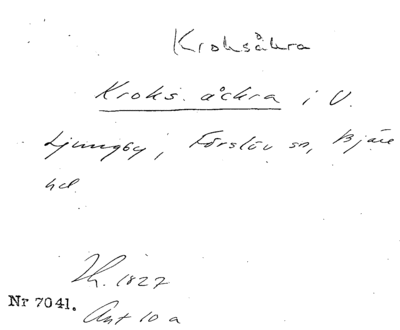 Kroksåkra
Kroks. åckra i V.
Ljungby, Förslöv sn, Bjäre
hd
Th. 1827
Nr 7041.
Ant 10 a